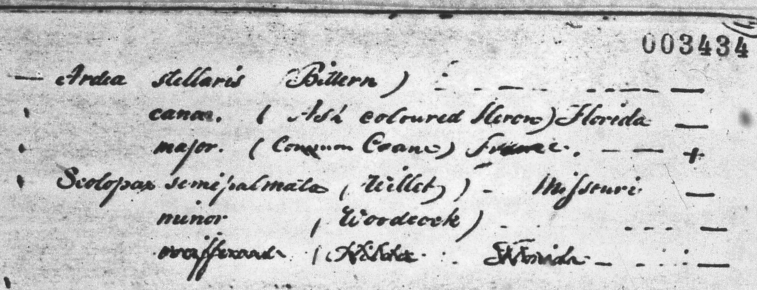 003434
— Ardea stellaris (Bittern) — — —
canae. (Ash coloured Heron) Florida —
major. (Common Crane) France. — — +
Scolopax semipalmata (Willet) - Missouri —
minor (Woodcock) — — —
Florida — — —